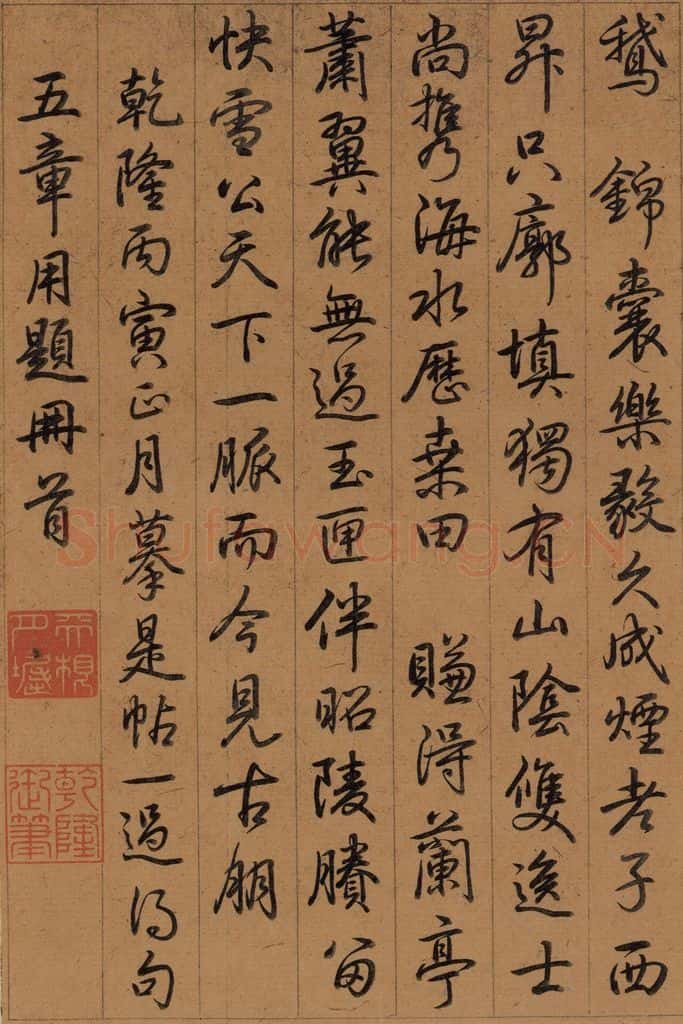 鵝 錦囊樂毅久成煙老子西
昇只廓填獨有山陰雙逸士
尚攜海水歷桒田 賺得蘭亭
蕭翼能無過玉匣伴昭陵賸留
快雪公天下一脈而今見古朋
乾隆丙寅正月摹是帖一過得句
五章用題冊首
乾隆
御筆
Shufawang.CN